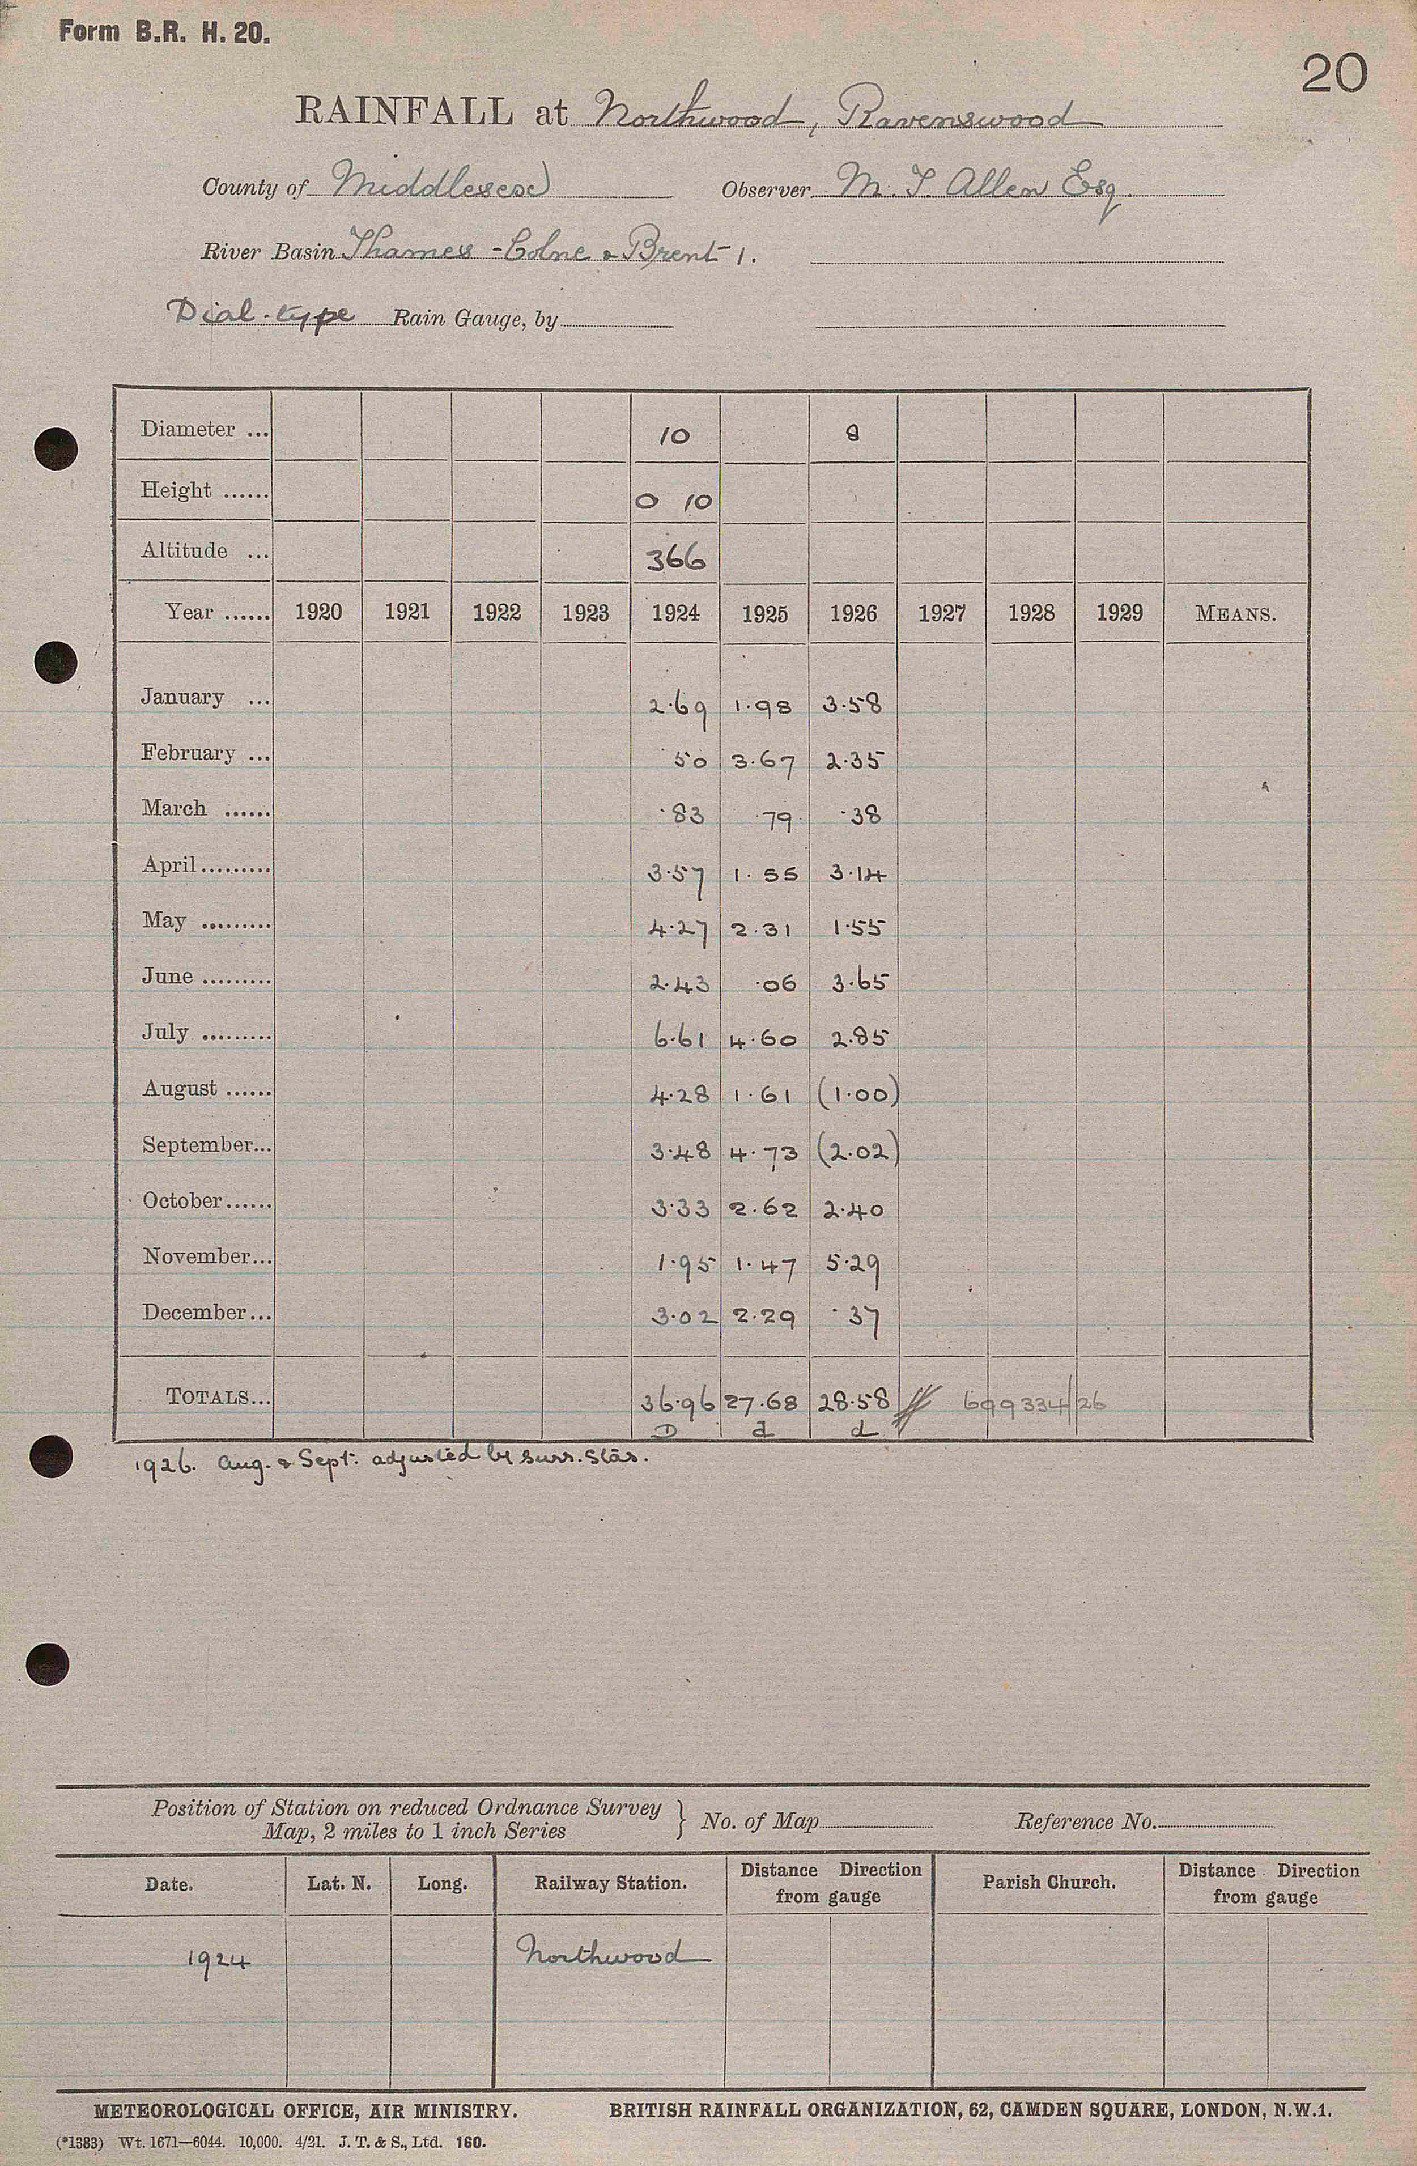 Form B.R. H. 20.
20
RAINFALL at Northwood, Ravenswood
County of Middlesex Observer M. T. Allen Esq.
River Basin Thames - Colne & Brent 1.
Dial-type Rain Gauge, by
Diameter ... 10 8
Height ...... 0 10
Altitude ... 366
Year ...... 1920 1921 1922 1923 1924 1925 1926 1927 1928 1929 MEANS.
January ... 2.69 1.98 3.58
February ... .50 3.67 2.35
March ...... .83 .79 .38
April ......... 3.57 1.55 3.14
May ......... 4.27 2.31 1.55
June ......... 2.43 .06 3.65
July ......... 6.61 4.60 2.85
August ...... 4.28 1.61 (1.00)
September... 3.48 4.73 (2.02)
October...... 3.33 2.62 2.40
November... 1.95 1.47 5.29
December... 3.02 2.29 .37
TOTALS... 36.96 27.68 28.58 699334/26
D d d
1926. Aug. & Sept: adjusted by surr. stns.
Position of Station on reduced Ordnance Survey
Map, 2 miles to 1 inch Series } No. of Map Reference No.
Date. Lat. N. Long. Railway Station. Distance Direction from gauge Parish Church. Distance Direction from gauge
1924 Northwood
METEOROLOGICAL OFFICE, AIR MINISTRY. BRITISH RAINFALL ORGANIZATION, 62, CAMDEN SQUARE, LONDON, N.W.1.
(*1383) Wt. 1671—6044. 10,000. 4/21. J. T. & S., Ltd. 160.